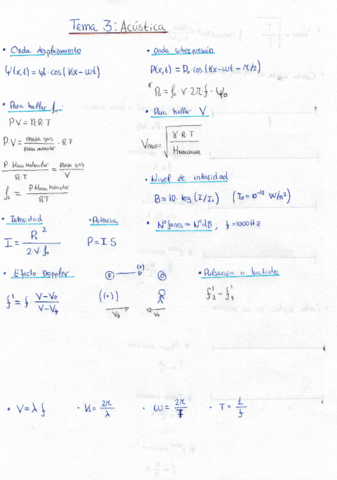 Tema 3: Acústica
• Onda desplazamiento
Ψ(x,t) = Ψ₀ · cos(Kx - ωt)
• Onda sobrepresión
P(x,t) = P₀ · cos(Kx - ωt - π/2)
* P₀ = ρ₀ · V · 2π f · Ψ₀
• Para hallar ρ₀:
P·V = n·R·T
P·V = masa gas / masa molecular · R·T
P · Masa Molecular / R·T = masa gas / V
ρ₀ = P·Masa Molecular / R·T
• Para hallar V
= √(γ·R·T / )
• Nivel de intensidad
B = 10 · log (I/I₀) (I₀ = 10⁻¹² W/m²)
• Intensidad
I = P₀² / 2·V·ρ₀
• Potencia
P = I·S
• Nº fonos = Nº dB, f = 1000 Hz
• Efecto Doppler
f' = f · V - V₀ / V - V_f
(+)
((•))
V_f
V₀
• Pulsación o batido
f'₂ - f'₁
• V = λ f
• K = 2π / λ
• ω = 2π / T
• T = 1 / f